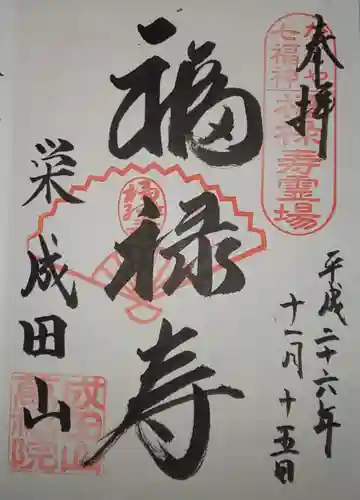 奉拝
七福神
福禄寿霊場
平成二十六年
十一月十五日
福禄寿
栄
成田山
成田山
高相院